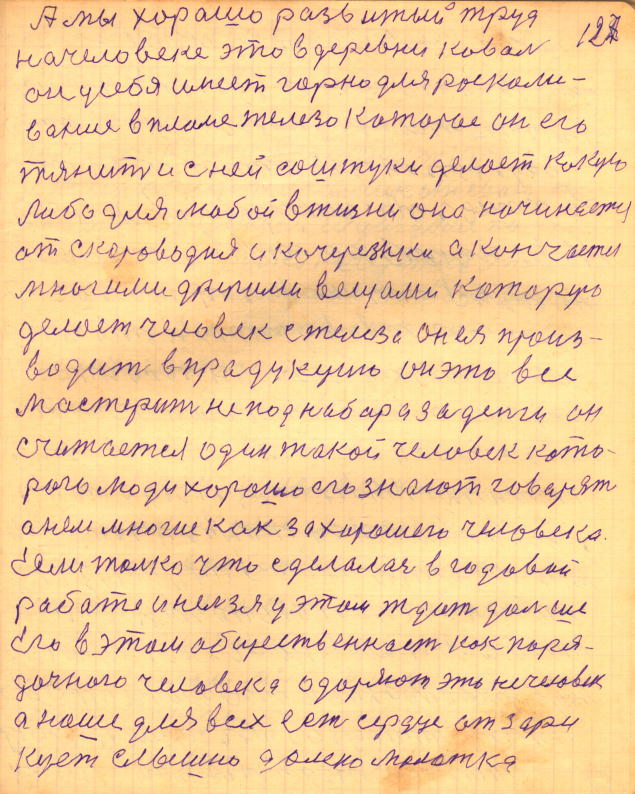 А мы хорошо развитый труд
127
на человеке это в деревни ковал
он у себя имеет горно для роскали-
вание в пламе железо которое он его
тянит и с ней соштуки делоет кокую
либо для любой в жизни она начинается
от скороводня и кочерезски а кончается
многими другими вещами которую
делоет человек с железа он ея произ-
водит в прадукцию он это все
мастерит не под набара за денги он
считается один такой человек кото-
рого люди хорошо его знают говарят
а нем многие как за хорошего человека.
Если толко что сделалая в годовой
работе и нелзя у этом ждат долше
Его в этом обществе ннаст как поря-
дочного человека одоряют это не человек
а наше для всех ест сердце от зари
кует слышно долеко молотка